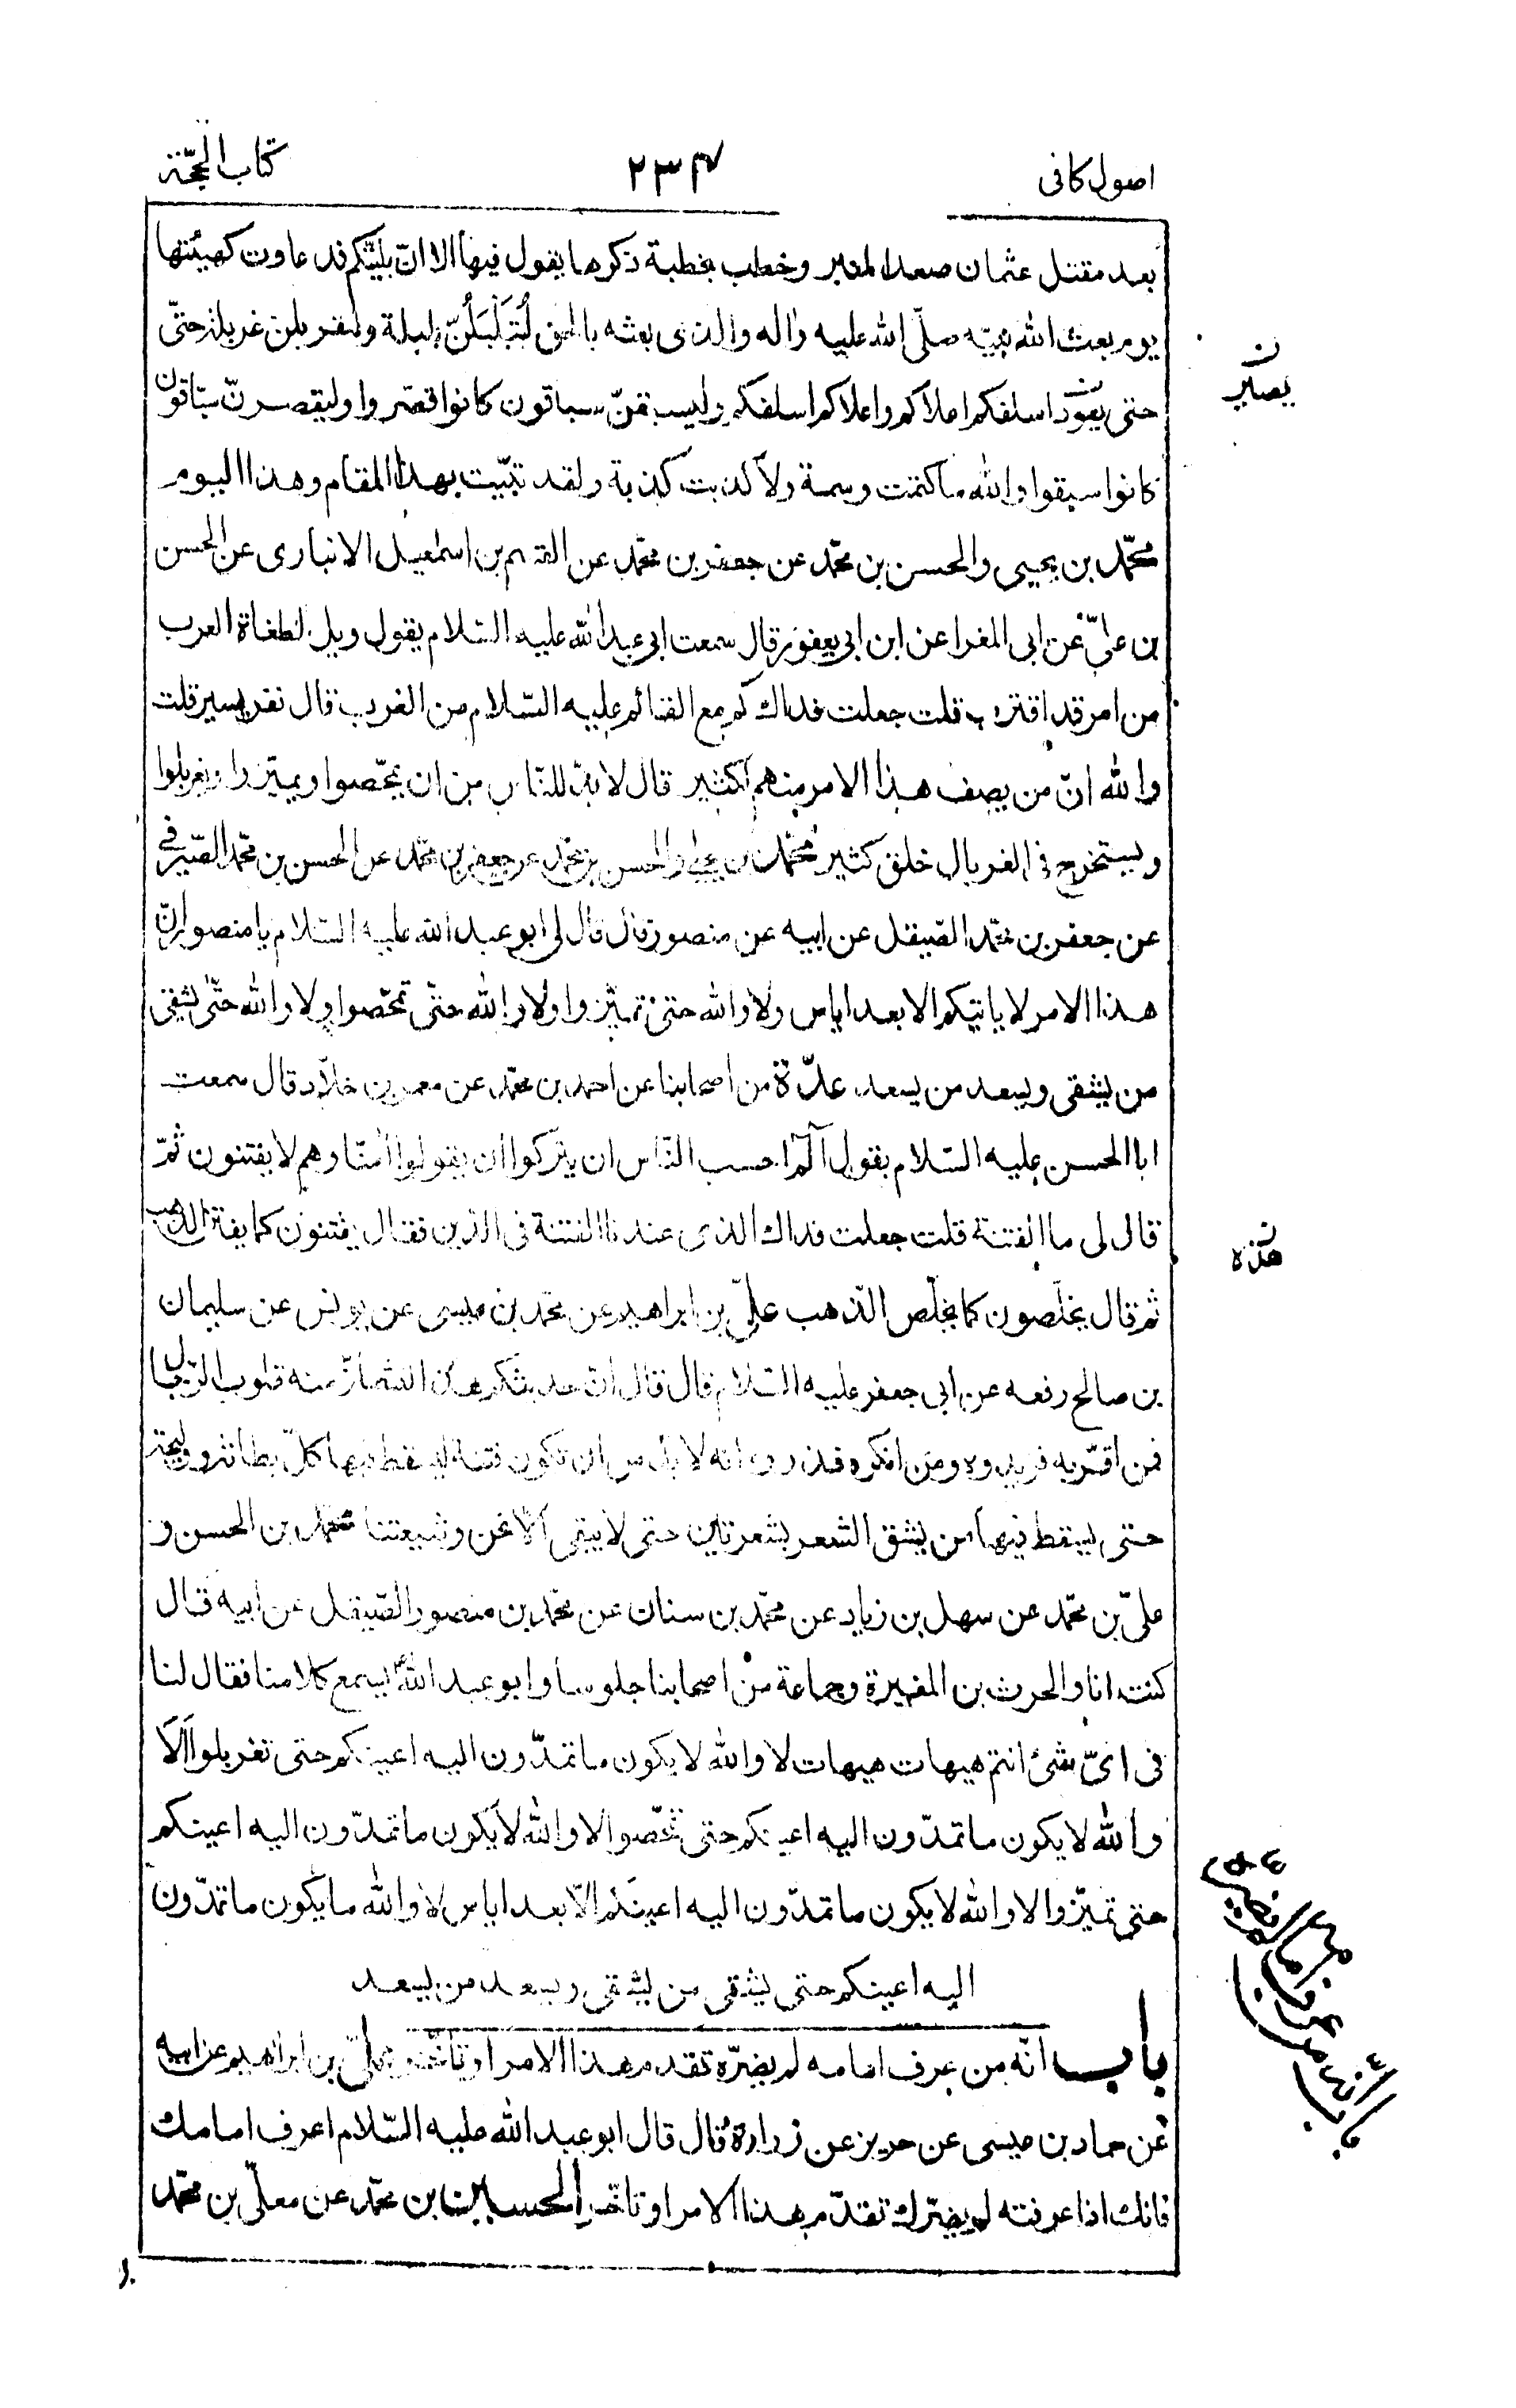 اصول كافى
٢٣٤
كتاب الحجّة
بعد مقتل عثمان صعد المنبر وخطب بخطبة ذكرها يقول فيها الا انّ بليّتكم قد عاوت كهيئتها
يوم بعث الله نبيّه صلّى الله عليه واله والذى بعثه بالحق لَتُبَلْبَلُنَّ بلبلة ولتغربلن غربلة حتّى
حتى يعود اسلفكم اعلاكم واعلاكم اسلفكم وليسبقنّ سباقون كانوا قصّروا وليقصرنّ سبّاقون
كانوا سبقوا والله ما كتمت وسمة ولا كذبت كذبة ولقد نبّيت بهذا المقام وهذا اليوم
محمّد بن يحيى والحسن بن محمّد عن جعفر بن محمّد عن القسم بن اسمعيل الانبارى عن الحسن
بن علىّ عن ابى المغرا عن ابن ابى يعفور قال سمعت ابى عبد الله عليه السّلام يقول ويل لطغاة العرب
من امر قد اقترب قلت جعلت فداك كم مع القائم عليه السّلام من العرب قال نفر يسير قلت
والله انّ من يصف هذا الامر منهم لكثير قال لا بدّ للنّاس من ان يمحّصوا ويميّزوا ويغربلوا
ويستخرج فى الغربال خلق كثير محمّد بن يحيى والحسن بن محمّد عن جعفر بن محمّد عن الحسن بن محمّد الصّيرفى
عن جعفر بن محمّد الصّيقل عن ابيه عن منصور قال قال لى ابو عبد الله عليه السّلام يا منصور انّ
هذا الامر لا ياتيكم الا بعد اياس ولا والله حتى تميّزوا ولا والله حتّى تمحّصوا ولا والله حتّى يشقى
من يشقى ويسعد من يسعد عدّة من اصحابنا عن احمد بن محمّد عن معمر بن خلّاد قال سمعت
ابا الحسن عليه السّلام يقول آلم احسب النّاس ان يتركوا ان يقولوا امنّا وهم لا يفتنون ثمّ
قال لى ما الفتنة قلت جعلت فداك الذى عندنا الفتنة فى الدّين فقال يفتنون كما يفتن الذهب
ثم قال يخلّصون كما يخلّص الذّهب علىّ بن ابراهيم عن محمّد بن عيسى عن يونس عن سليمان
بن صالح رفعه عن ابى جعفر عليه السّلام قال قال انّ حديثكم هذا لتشمأزّ منه قلوب الرّجال
فمن اقرّ به فزيدوه ومن انكره فذروه انه لا بد من ان تكون فتنة يسقط فيها كلّ بطانة ووليجة
حتى يسقط فيها من يشق الشعر بشعرتين حتى لا يبقى الّا نحن وشيعتنا محمّد بن الحسن و
علىّ بن محمّد عن سهل بن زياد عن محمّد بن سنان عن محمّد بن منصور الصّيقل عن ابيه قال
كنت انا والحرث بن المغيرة وجماعة من اصحابنا جلوسا وابو عبد الله يسمع كلامنا فقال لنا
فى اىّ شئ انتم هيهات هيهات لا والله لا يكون ما تمدّون اليه اعينكم حتى تغربلوا لا
والله لا يكون ما تمدّون اليه اعينكم حتى تمحّصوا لا والله لا يكون ما تمدّون اليه اعينكم
حتى تميّزوا لا والله لا يكون ما تمدّون اليه اعينكم الّا بعد اياس لا والله ما يكون ما تمدّون
اليه اعينكم حتى يشقى من يشقى ويسعد من يسعد
باب انّه من عرف امامه لم يضرّه تقدم هذا الامر او تأخّر علىّ بن ابراهيم عن ابيه
عن حماد بن عيسى عن حريز عن زرارة قال قال ابو عبد الله عليه السّلام اعرف امامك
فانك اذا عرفته لم يضرّك تقدّم هذا الامر او تأخّر الحسين بن محمّد عن معلّى بن محمّد
ن
يصير
ن
هذه